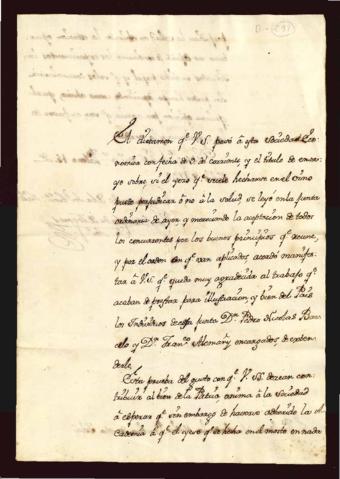 D-(291)
El dictamen q.e V. S. pasó á esta Sociedad Eco-
nomica con fecha de 6 del corriente y el titulo de ensa-
yo sobre si el yeso q.e suele hecharse en el vino
puede prejudicar ó no á la salud se leyó en la junta
ordinaria de ayer, y mereciendo la aceptacion de todos
los concurrentes por los buenos principios q.e reune,
y por el orden con q.e van aplicados, acordó manifes-
tar á V. S. q.e queda muy agradecida al trabajo q.e
acaban de prestar para illustracion y bien del Pais
los Individuos de essa junta D.n Pedro Nicolas
y D.n Fran.co Alemañy encargados de exten-
derle.
Esta prueba del gusto con q.e V. SS. dezean con-
tribuir al bien de la Patria anima á la Sociedad
á esperar q.e sin embargo de haverse adherido la
á q.e el yeso q.e se hecha en el mosto en nada